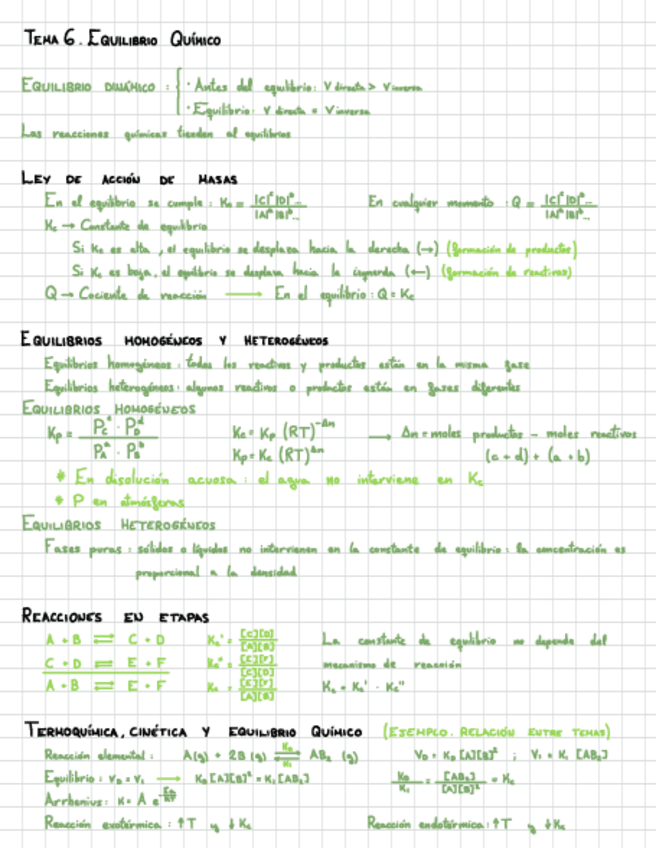 TEMA 6. EQUILIBRIO QUÍMICO
EQUILIBRIO DINÁMICO : { · Antes del equilibrio: V directa > V inversa
· Equilibrio: V directa = V inversa
Las reacciones químicas tienden al equilibrio
LEY DE ACCIÓN DE MASAS
En el equilibrio se cumple : Kc = |C|ᶜ |D|ᵈ... / |A|ᵃ |B|ᵇ... En cualquier momento : Q = |C|ᶜ |D|ᵈ... / |A|ᵃ |B|ᵇ...
Kc → Constante de equilibrio
Si Kc es alta, el equilibrio se desplaza hacia la derecha (→) (formación de productos)
Si Kc es baja, el equilibrio se desplaza hacia la izquierda (←) (formación de reactivos)
Q → Cociente de reacción → En el equilibrio : Q = Kc
EQUILIBRIOS HOMOGÉNEOS Y HETEROGÉNEOS
Equilibrios homogéneos : todos los reactivos y productos están en la misma fase
Equilibrios heterogéneos : algunos reactivos o productos están en fases diferentes
EQUILIBRIOS HOMOGÉNEOS
Kp = P_C^c · P_D^d / P_A^a · P_B^b Kc = Kp (RT)^-Δn → Δn = moles productos - moles reactivos
Kp = Kc (RT)^Δn (c + d) + (a + b)
* En disolución acuosa : el agua no interviene en Kc
* P en atmósferas
EQUILIBRIOS HETEROGÉNEOS
Fases puras : sólidos o líquidos no intervienen en la constante de equilibrio : la concentración es
proporcional a la densidad
REACCIONES EN ETAPAS
A + B ⇌ C + D Kc' = [C][D] / [A][B] La constante de equilibrio no depende del
C + D ⇌ E + F Kc'' = [E][F] / [C][D] mecanismo de reacción
A + B ⇌ E + F Kc = [E][F] / [A][B] Kc = Kc' · Kc''
TERMOQUÍMICA, CINÉTICA Y EQUILIBRIO QUÍMICO (EJEMPLO. RELACIÓN ENTRE TEMAS)
Reacción elemental : A(g) + 2B (g) ⇌ AB₂ (g) V_D = K_D [A][B]² ; V_i = K_i [AB₂]
Equilibrio : V_D = V_i → K_D [A][B]² = K_i [AB₂] K_D / K_i = [AB₂] / [A][B]² = Kc
Arrhenius : K = A e^-Ea/RT
Reacción exotérmica : ↑T y ↓Kc Reacción endotérmica : ↑T y ↓Kc